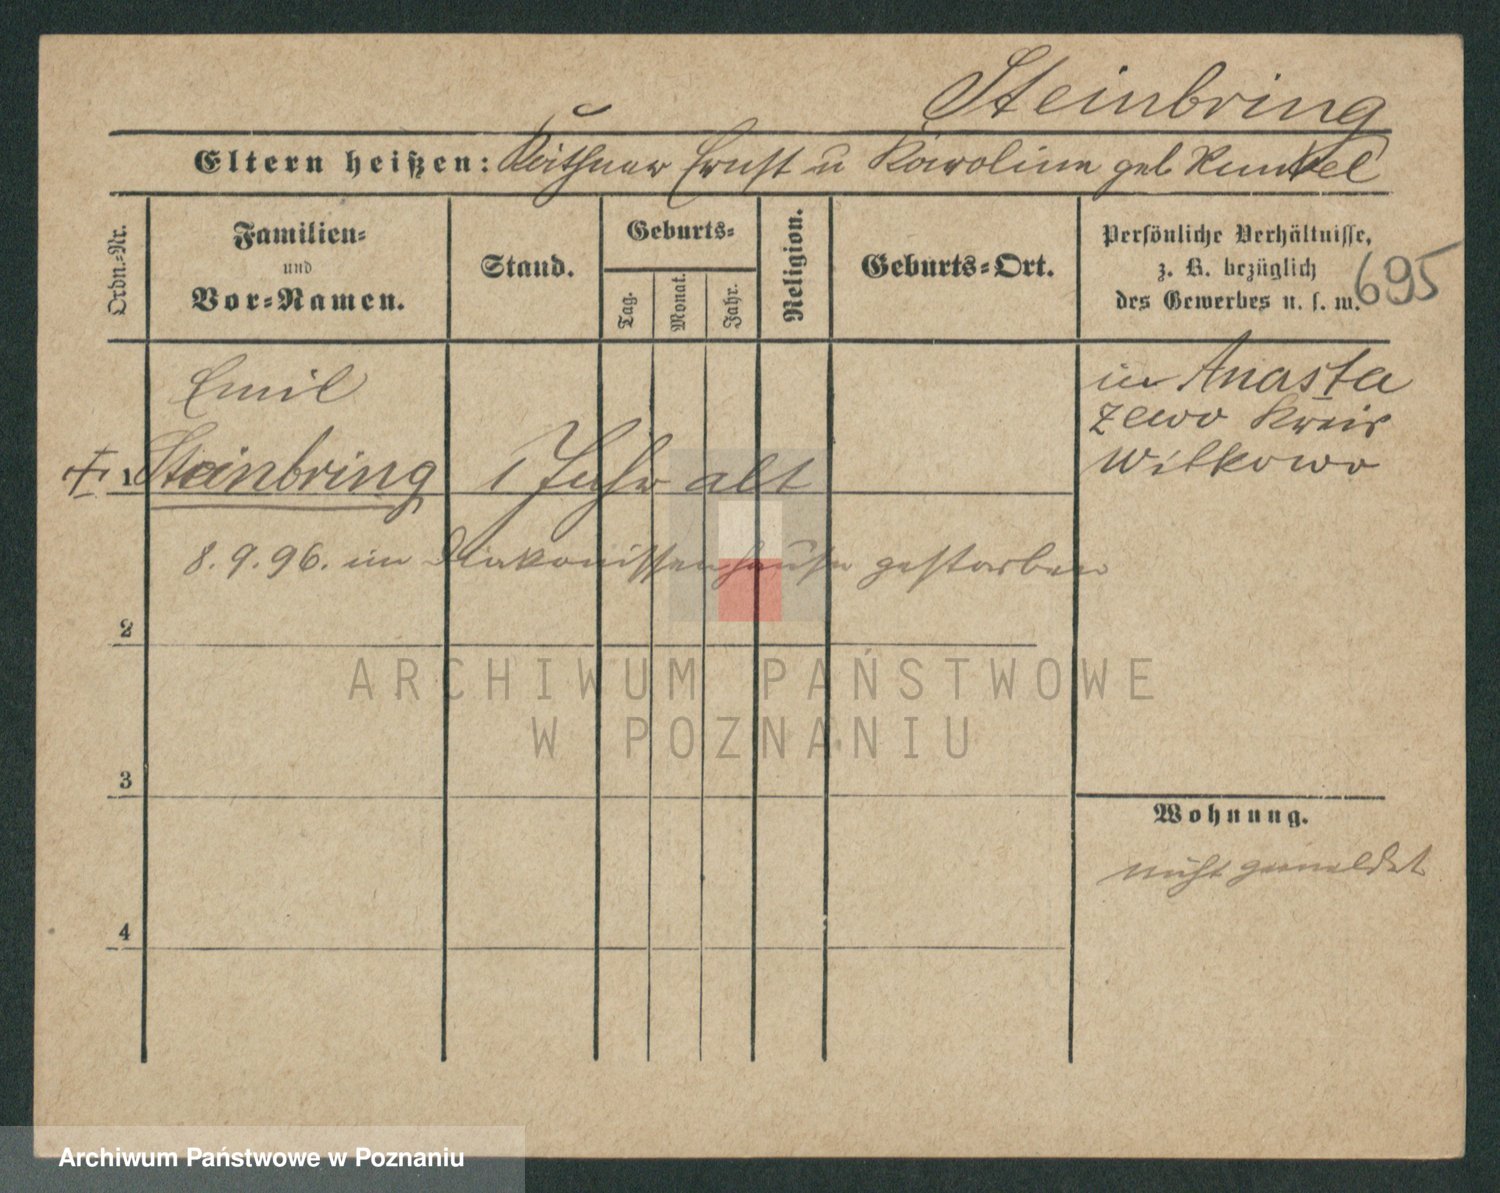 Steinbring
Eltern heißen: Käthner Ernst u Karoline geb Kunkel
Ordn.-Nr.
Familien-
und
Vor-Namen.
Stand.
Geburts-
Tag.
Monat.
Jahr.
Religion.
Geburts-Ort.
Persönliche Verhältnisse,
z. B. bezüglich
des Gewerbes u. s. w.
695
Emil
1 Steinbring 1 Jahr alt
in Anasta
zewo Kreis
Witkowo
8. 9. 96. im Diakonissenhause gestorben
2
3
4
Wohnung.
nicht gemeldet
ARCHIWUM PAŃSTWOWE
W POZNANIU
Archiwum Państwowe w Poznaniu